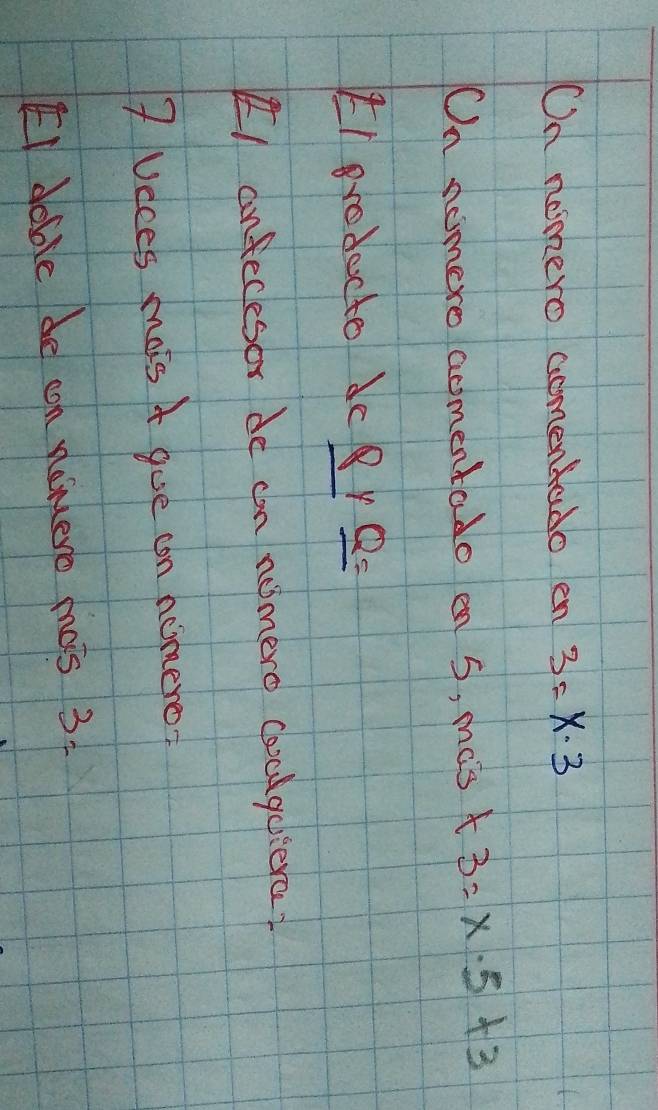 Un número aomentado en 3= X·3
Un número aomentado en 5, más + 3= X·5+3
El producto de P y Q=
El antecesor de un número cualquiera=
7 Veces más + que un número=
El doble de un número más 3=